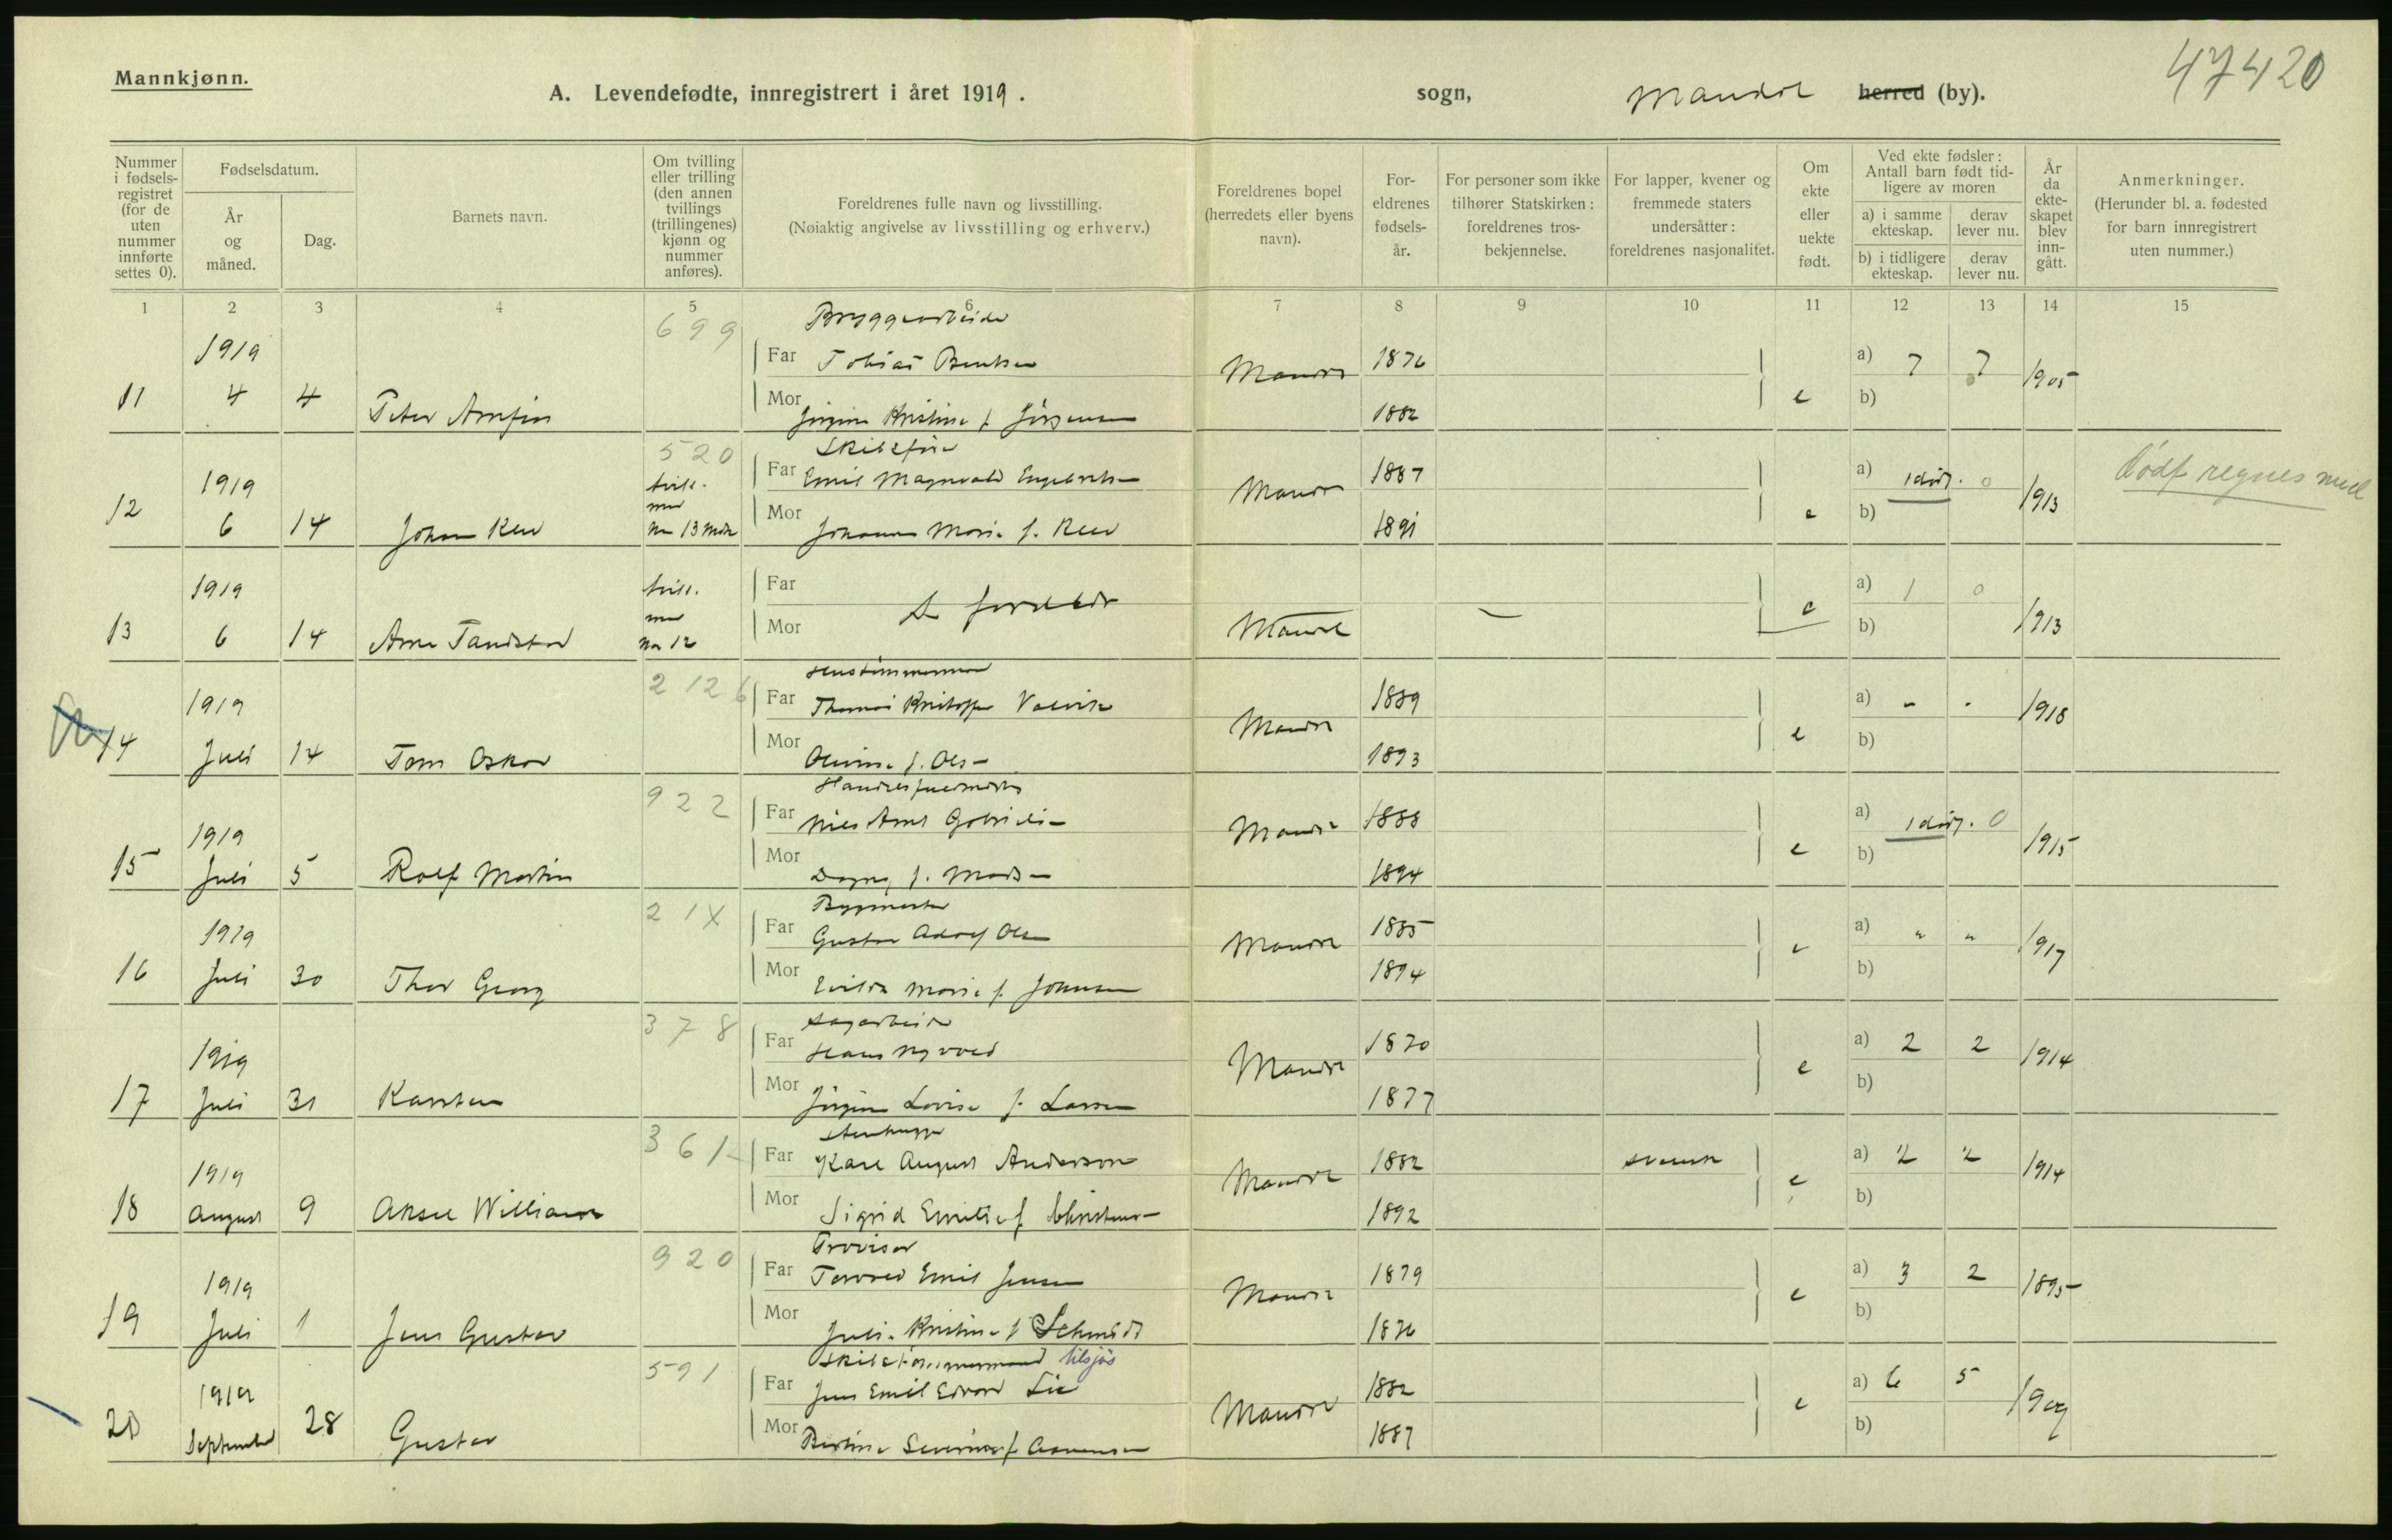 Mannkjønn.
A. Levendefødte, innregistrert i året 1919.
sogn, Mandal herred (by).
47420
Nummer i fødsels-registret (for de uten nummer innførte settes 0).
Fødselsdatum.
År og måned.
Dag.
Barnets navn.
Om tvilling eller trilling (den annen tvillings (trillingenes) kjønn og nummer anføres).
Foreldrenes fulle navn og livsstilling.
(Nøiaktig angivelse av livsstilling og erhverv.)
Foreldrenes bopel (herredets eller byens navn).
For-eldrenes fødsels-år.
For personer som ikke tilhører Statskirken: foreldrenes tros-bekjennelse.
For lapper, kvener og fremmede staters undersåtter: foreldrenes nasjonalitet.
Om ekte eller uekte født.
Ved ekte fødsler: Antall barn født tid-ligere av moren
a) i samme ekteskap.
derav lever nu.
b) i tidligere ekteskap.
derav lever nu.
År da ekte-skapet blev inn-gått.
Anmerkninger.
(Herunder bl. a. fødested for barn innregistrert uten nummer.)
1 2 3 4 5 6 7 8 9 10 11 12 13 14 15
699 Bryggearbeider
1919 Far Tobias Bentsen Mandal 1876 a) 7 7 1905
11 4 4 Peter Arnfin Mor Jørgine Kristine f. Jørgensen 1882 e b)
520
1919 tvill. Far Emil Magnvald Engebretsen Mandal 1887 a) 1 dødf. 0 1913 Dødf regnes med
12 6 14 Johan Klev med No 13 Mor Johanne Marie f. Klev 1891 e b)
1919 tvill. Far a) 1 0
13 6 14 Arne med No 12 Mor Mandal e b) 1913
2126 Hustømmermand
1919 Far Thomas Kristoffer Valvik Mandal 1889 a) - - 1918
14 Juli 14 Tom Oskar Mor f. Olsen 1893 e b)
922
1919 Far Nils Arnt Gabrielsen Mandal 1888 a) 1 dødf. 0 1915
15 Juli 5 Rolf Martin Mor Dagny f. Madsen 1894 e b)
21X Bygmester
1919 Far Gustav Adolf Olsen Mandal 1885 a) " " 1917
16 Juli 30 Thor Georg Mor Marie f. Johnsen 1894 e b)
378 Sagarbeider
1919 Far Hans Mandal 1870 a) 2 2 1914
17 Juli 31 Karsten Mor Jørgine Lovise f. Larsen 1877 e b)
361 Stenhugger
1919 Far Karl August Anderson Mandal 1882 svensk a) 2 2 1914
18 August 9 Aksel William Mor Sigrid Emilie f. Christensen 1892 e b)
920 Provisor
1919 Far Torvald Emil Jensen Mandal 1879 a) 3 2 1895
19 Juli 1 Jens Gustav Mor Julie Kristine f. Schmidt 1876 e b)
591 Skibstømmermand tilsjøs
1919 Far Jens Emil Edvard Lie Mandal 1882 a) 6 5
20 September 28 Gustav Mor Bertine f. 1887 e b)